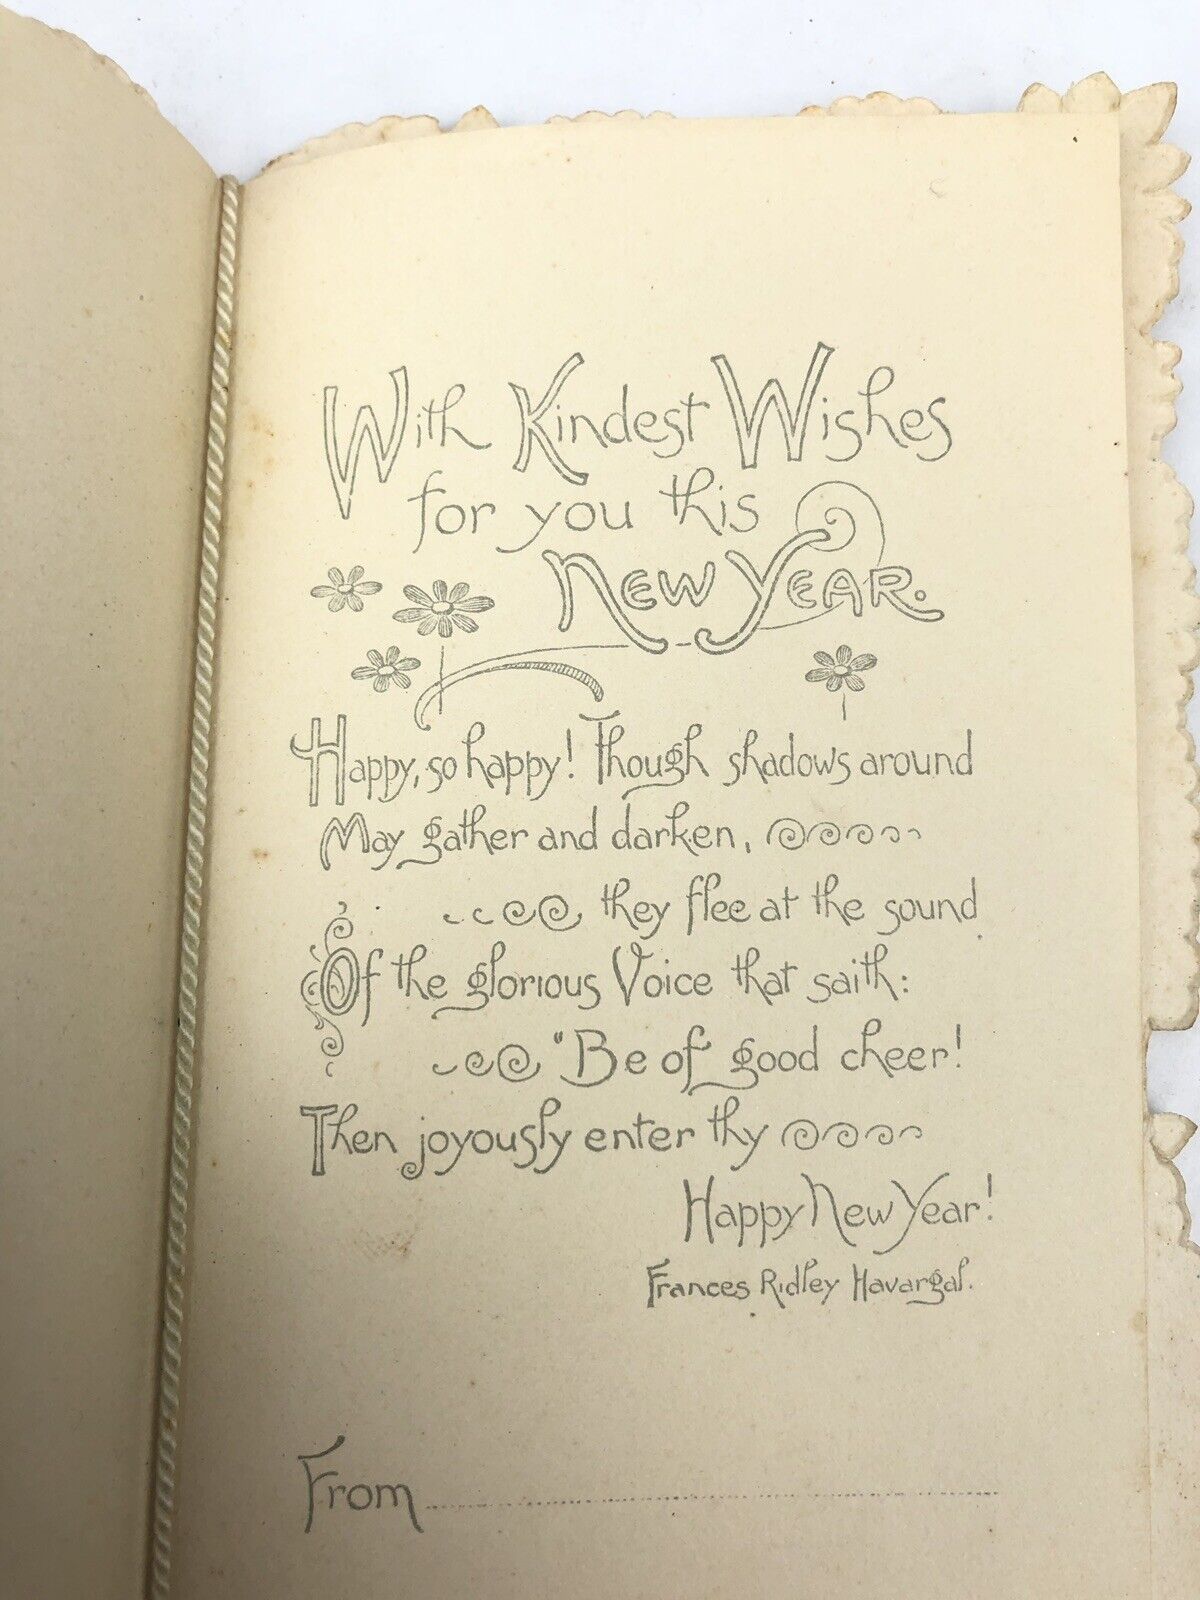 With Kindest Wishes
for you this
New Year.
Happy, so happy! Though shadows around
May gather and darken,
they flee at the sound
Of the glorious Voice that saith:
"Be of good cheer!
Then joyously enter thy
Happy New Year!
Frances Ridley Havargal.
From